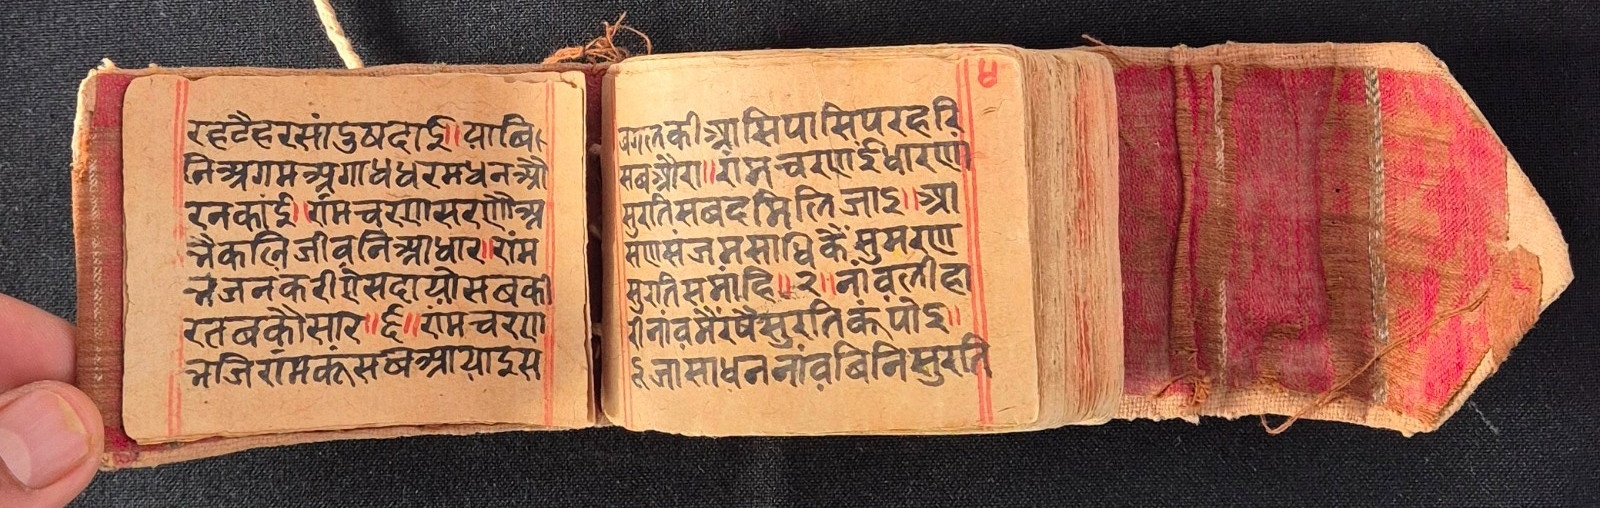 रहटैहरसांदुषदाई॥याबि
निअगमअगाधधरमधनऔ
रनकांई॥रांमचरणसरणौअ
नैकलिजीवनिआधार॥रांम
नजनकरीऐसदायोसबकी
रतबकौसार॥६॥रांमचरण
नजिरांमकूंसबआयाइस
४
जगतकीआसिपासिपरहरि
सबऔरा॥रांमचरणईधारणा
सुरतिसबदमिलिजाइ॥आ
सणसंजमसाधिकैसुमरण
सुरतिसमांहि॥२॥नांवलीहा
रीनांवमैंरषैसुरतिकंपोइ॥
इजासाधननांवबिनिसुरति